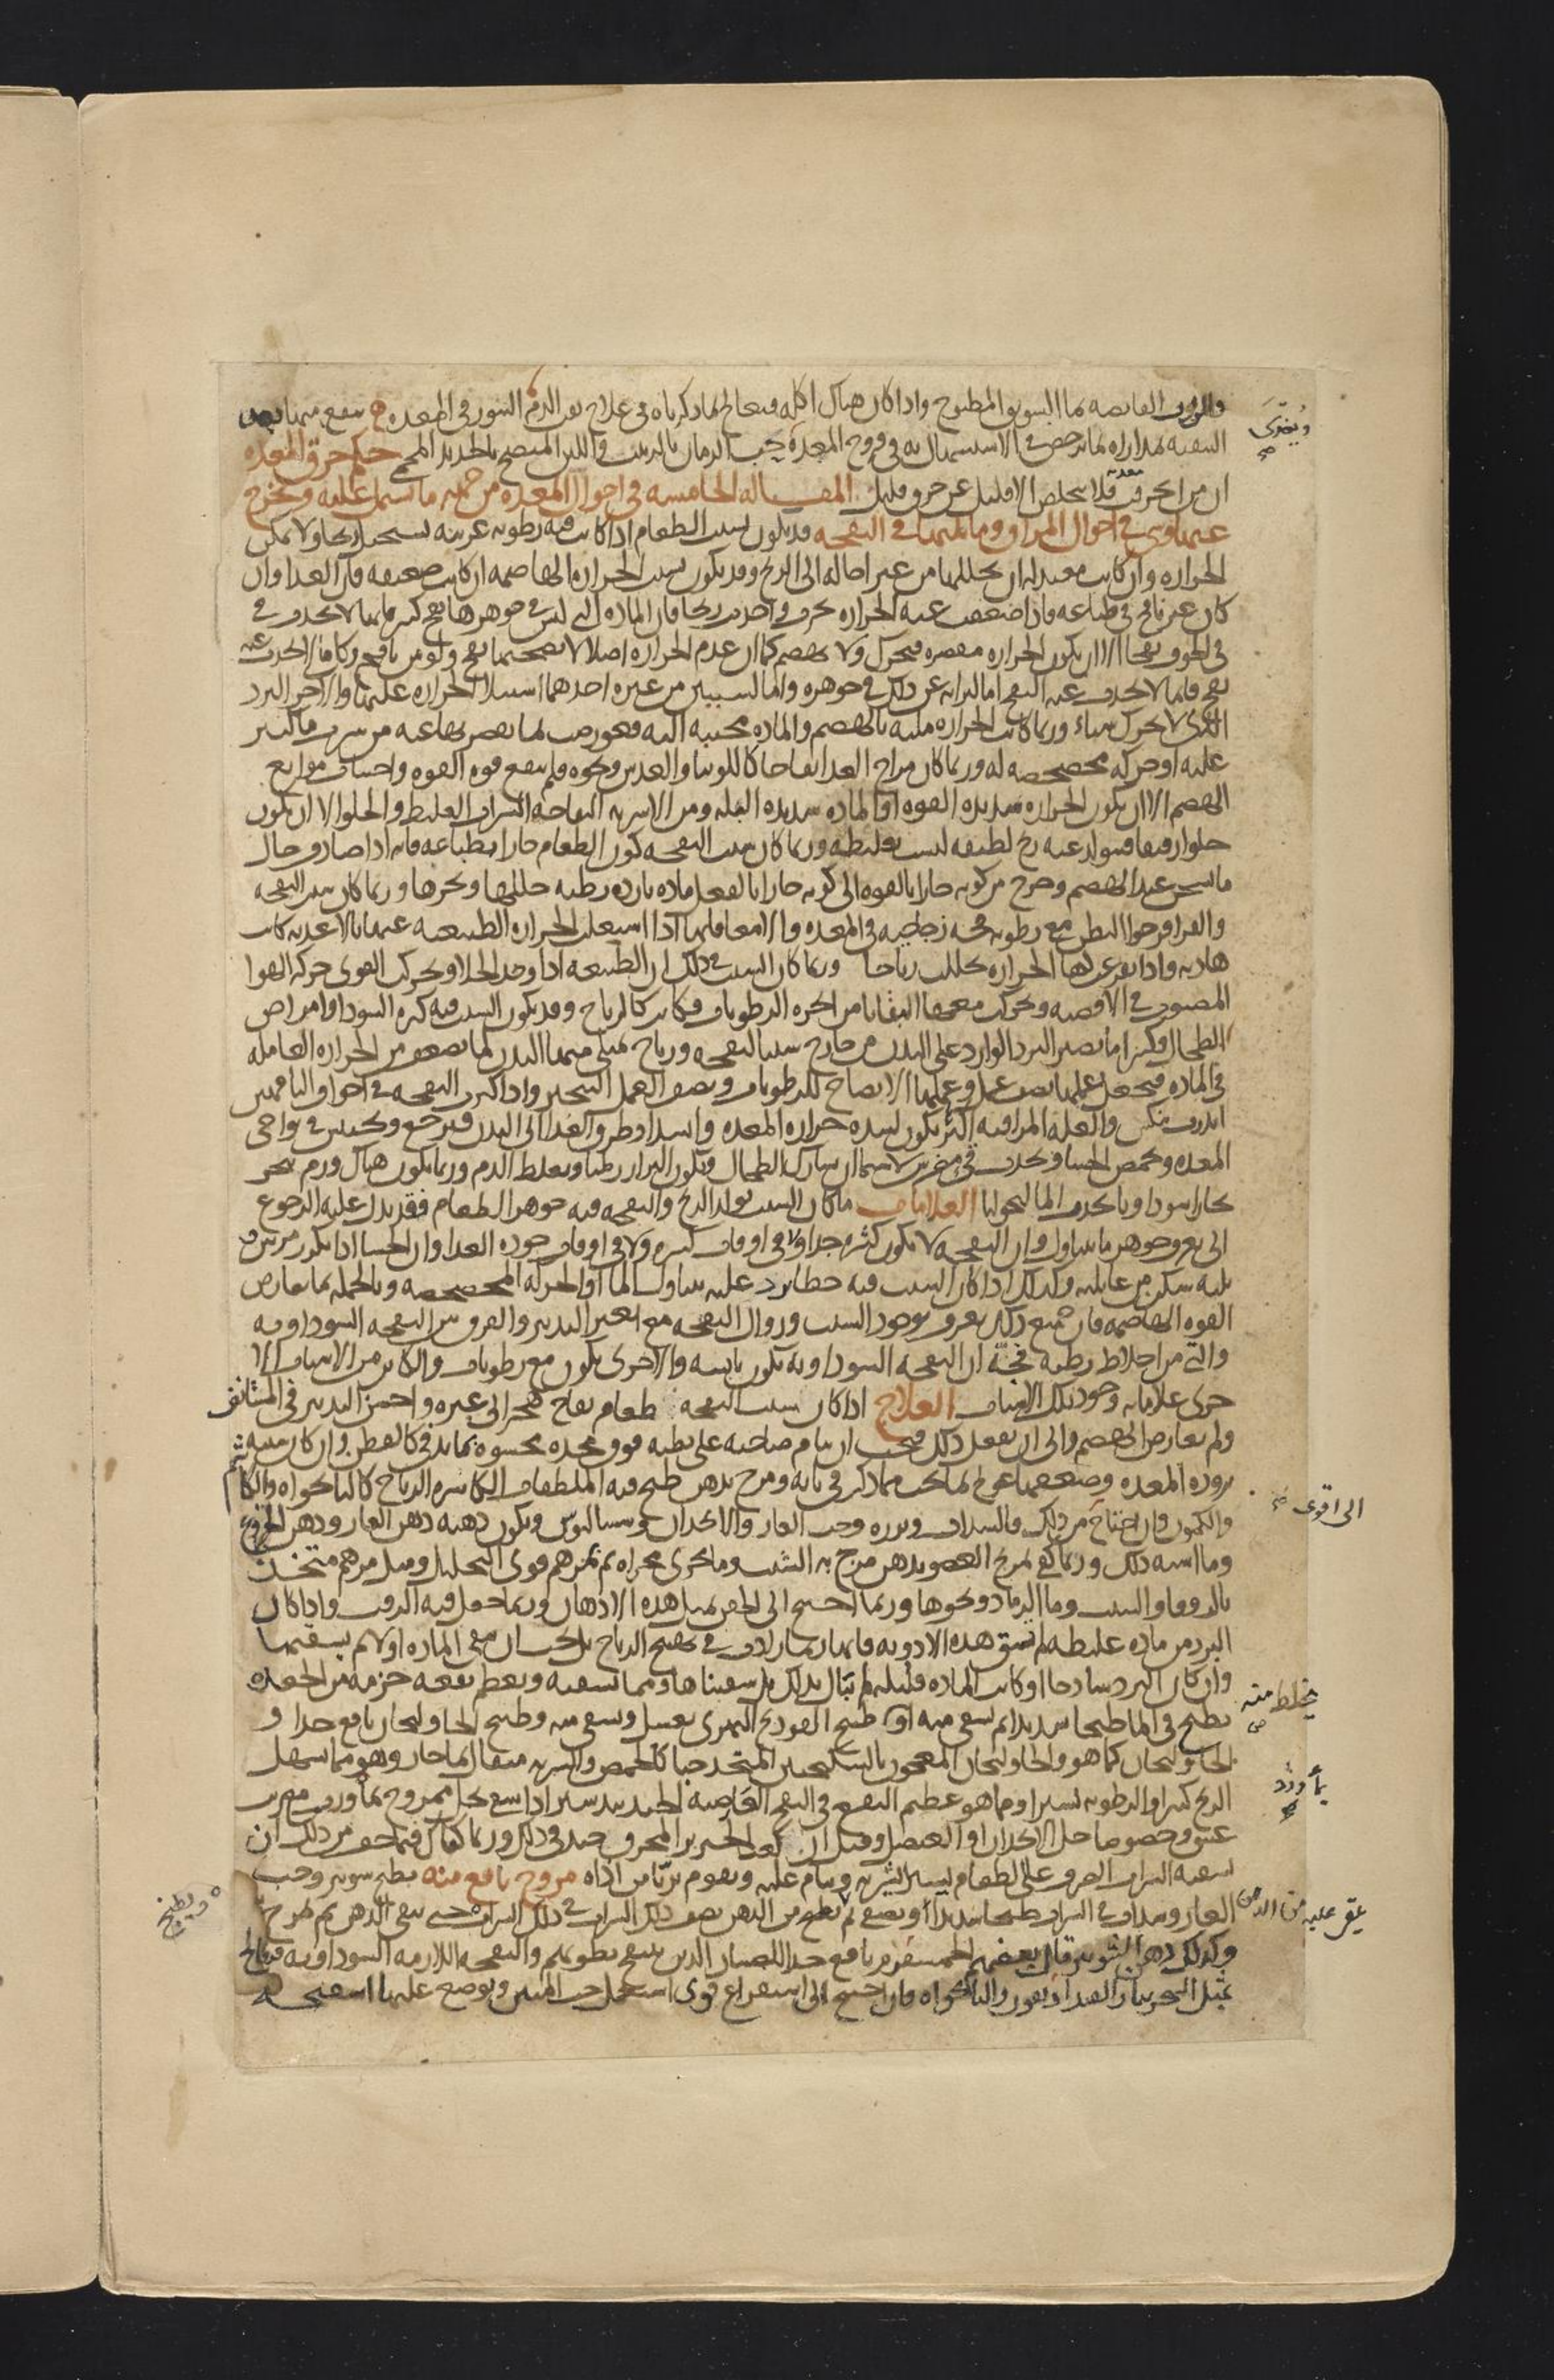 القابضة بماء السويق المطبوخ واذا كان هناك اكلة فيعالج بما ذكرناه فى علاج نفث الدم
التنقية فى الاستسهال به فى قروح المعدة حب الرمان بالزبيب حكم خرق المعدة
ان من انخرقت معدته فلا يتخلص الا قليل عن خرق قليل المقالة الخامسة فى احوال المعدة من جهة ما تشتمل عليه ويخرج
عنها وفى احوال المراق وما يليها فى النفخة قد يكون لسبب الطعام اذا كانت فيه رطوبة غريبة تستحيل ريحا ولا يمكن
الحرارة وان كانت معتدلة ان يحللها من غير احالة الى الريح وقد يكون لسبب الحرارة الهاضمة ان كانت ضعيفة فان الغذاء وان
كان غير نافخ فى طباعه فاذا ضعفت عنه الحرارة بخرت واحدثت ريحا فان المادة التى ليس فى جوهرها نفخ كثير فانها لا تحدث فى
فى الجوف نفخا الا ان يكون الحرارة مقصرة فتحرك ولا تهضم كما ان عدم الحرارة اصلا لا يصحبها نفخ ولو من نافخ
نفخ فانما لا تحدث عنه النفخ اما لبراءته عن ذلك فى جوهره واما لسببين من غيره احدهما استيلاء الحرارة عليها والاخر البرد
الذى لا يحرك شيئا وربما كانت الحرارة ملية بالهضم والمادة مجيبة اليه فعورضت بما يقصر بها عنه من شرب ماء كثير
عليه او حركة مخضخضة له وربما كان مزاج الغذاء نفاخا كاللوبيا والعدس ونحوه فلم ينفع قوة القوة واجتناب موانع
الهضم الا ان يكون الحرارة شديدة القوة او المادة شديدة القلة ومن الاشربة النفاخة الشراب الغليظ والحلو الا ان يكون
حلوا رقيقا فيتولد عنه ريح لطيفة ليست بغليظة وربما كان سبب النفخة كون الطعام حارا بطباعه فانه اذا صادف حال
ما يسخن عند الهضم وخرج من كونه حارا بالقوة الى كونه حارا بالفعل مادة باردة رطبة حللها وبخرها وربما كان سبب النفخة
والقراقر خوا البطن مع رطوبة فجة زجاجية فى المعدة والامعاء فانها اذا اشتغلت الحرارة الطبيعية عنها بالاغذية كانت
هادية واذا تفرغت لها الحرارة تحللت رياحا وربما كان السبب فى ذلك ان الطبيعة اذا وجدت الخلاء وتحركت القوى حركة الهواء
المصبوب فى الاقضية وتحركت معها البقايا من ابخرة الرطوبات فكانت كالرياح وقد يكون السبب فيه كثرة السوداء وامراض
الطحال وكثيرا ما يصير البرد الوارد على البدن من خارج سببا لنفخة ورياح تمتلئ منها البدن لما يضعف من الحرارة العاملة
فى المادة فيجعل عملها نصف عمل وعملها الانضاج للرطوبات ونصف العمل التبخير واذا كثرت النفخة فى اجواف الناقهين
انذرت بنكس والعلة المراقية اكثر يكون لشدة حرارة المعدة وانسداد طرق الغذاء الى البدن فيرجع ويحتبس فى نواحى
المعدة ويحمض الجشاء ويحدث قئ مضرس لا سيما ان شارك الطحال ويكون البراز رطبا ويغلظ الدم وربما يكون هناك ورم يبخر
بخارا سوداويا يحدث المالنخوليا العلامات ما كان السبب تولد الريح والنفخة فيه جوهر الطعام فقد يدل عليه الرجوع
الى تعرف جوهر ما يتناول وان النفخة لا تكون كثيرة جدا ولا فى اوقات كثيرة ولا فى اوقات جودة الغذاء وان الجشاء اذا تكرر مرتين و
ثلثة سكن من غائلته وكذلك اذا كان السبب فيه خطا يرد عليه بتناول الماء او الحركة المخضخضة وبالجملة بما يعارض
القوة الهاضمة فان جميع ذلك يعرف بوجود السبب وزوال النفخة مع تغيير التدبير والفرق بين النفخة السوداوية
والتى من اخلاط رطبة فجّة ان النفخة السوداوية يكون يابسة والاخرى يكون مع رطوبات والكاين من الاسباب
الاخرى علاماته وجود تلك الاسباب العلاج اذا كان سبب النفخة طعام نفاخ هجر الى غيره واحسن التدبير فى المستانف
ولم يعارض الهضم والى ان يفعل ذلك فيجب ان ينام صاحبه على بطنه فوق مخدة محشوة بما يدفئ كالقطن وان كان سببه
برودة المعدة وضعفها عولج بما يجب مما ذكر فى بابه ومرخ بدهن طبخ فيه الملطفات الكاسرة الرياح كالنانخواه
والكمون فان احتاج من ذلك فالسذاب وبزره وحب الغار والانجدان وسيساليوس ويكون دهنه دهن الغار ودهن الخروع
وما اشبه ذلك وربما كفى تمرخ العضو بدهن مزج به الشبت وما يجرى مجراه ثم بمرهم قوى التحليل ومثل مرهم متخذ
بالزوفا والشبت وماء الرماد ونحوها وربما احتيج الى الحقن بمثل هذه الادهان وربما جعل فيه الزفت واذا كان
البرد من مادة غليظة لم يسق هذه الادوية فانها ربما زادت فى تهييج الرياح بل يجب ان ينقى المادة اولا ثم يسقيها
وان كان البرد ساذجا او كانت المادة قليلة لم نبال بذلك بل سقيناها ومما نسقيه ويعظم نفعه حزمة من الجعدة
يطبخ فى الماء طبخا شديدا ثم يسقى منه او طبيخ الفودنج النهرى بعسل ويسقى منه وطبيخ الخاولنجان نافع جدا و
الخاولنجان كما هو والخاولنجان المعجون بالسكنجبين المتخذ حبا كالحمص والشربة مثقال بماء حار وهو مما يسهل
الريح كثيرا والرطوبة يسيرا ومما هو عظيم النفع فى النفخ القاضية الجندبيدستر اذا سقى بخل ممزوج
عتيق وخصوصا خل الانجدان او العنصل وقيل ان كعب الخنزير المحرق جيد فى ذلك وربما كفاك فيما خف من ذلك ان
تسقيه الشراب الصرف على الطعام يسير الشرب وينام عليه ويقوم بريّا من اذاه مروخ نافع منه يطبخ شونيز وحب
الغار وسذاب فى الشراب طبخا شديدا ويصفى ثم يطبخ من الدهن نصف ذلك الشراب فى ذلك الشراب حتى يبقى الدهن ثم يمرخ
وكذلك دهن الشونيز قال بعضهم ان نافع جدا للصبيان الذين ينتفخ بطونهم والنفخة اللازمة السوداوية فيعالج
بمثل الفنجنوش والنانخواه فان احتيج الى استفراغ قوى استعمل حب المنتن ويوضع عليها اسفنجة
ويغذى
الى اقوى
يخلط منه
عليه من الدهن
ويطبخ